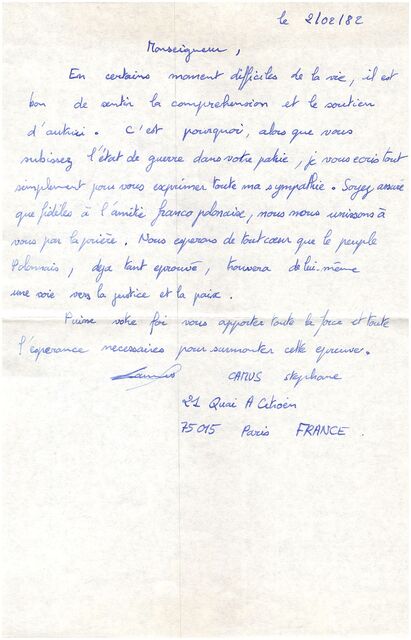 le 2/02/82
Monseigneur,
En certains moment difficiles de la vie, il est
bon de sentir la comprehension et le soutien
d'autrui. C'est pourquoi, alors que vous
subissez l'état de guerre dans votre patrie, je vous ecris tout
simplement pour vous exprimer toute ma sympathie. Soyez assuré
que fidèles à l'amitié franco polonaise, nous nous unissons à
vous par la prière. Nous esperons de tout cœur que le peuple
Polonais, deja tant eprouvé, trouvera de lui-même
une voie vers la justice et la paix.
Puisse votre foi vous apporter toute la force et toute
l'esperance necessaires pour surmonter cette epreuve.
CAMUS Stephane
21 Quai A Citroën
75015 Paris FRANCE.